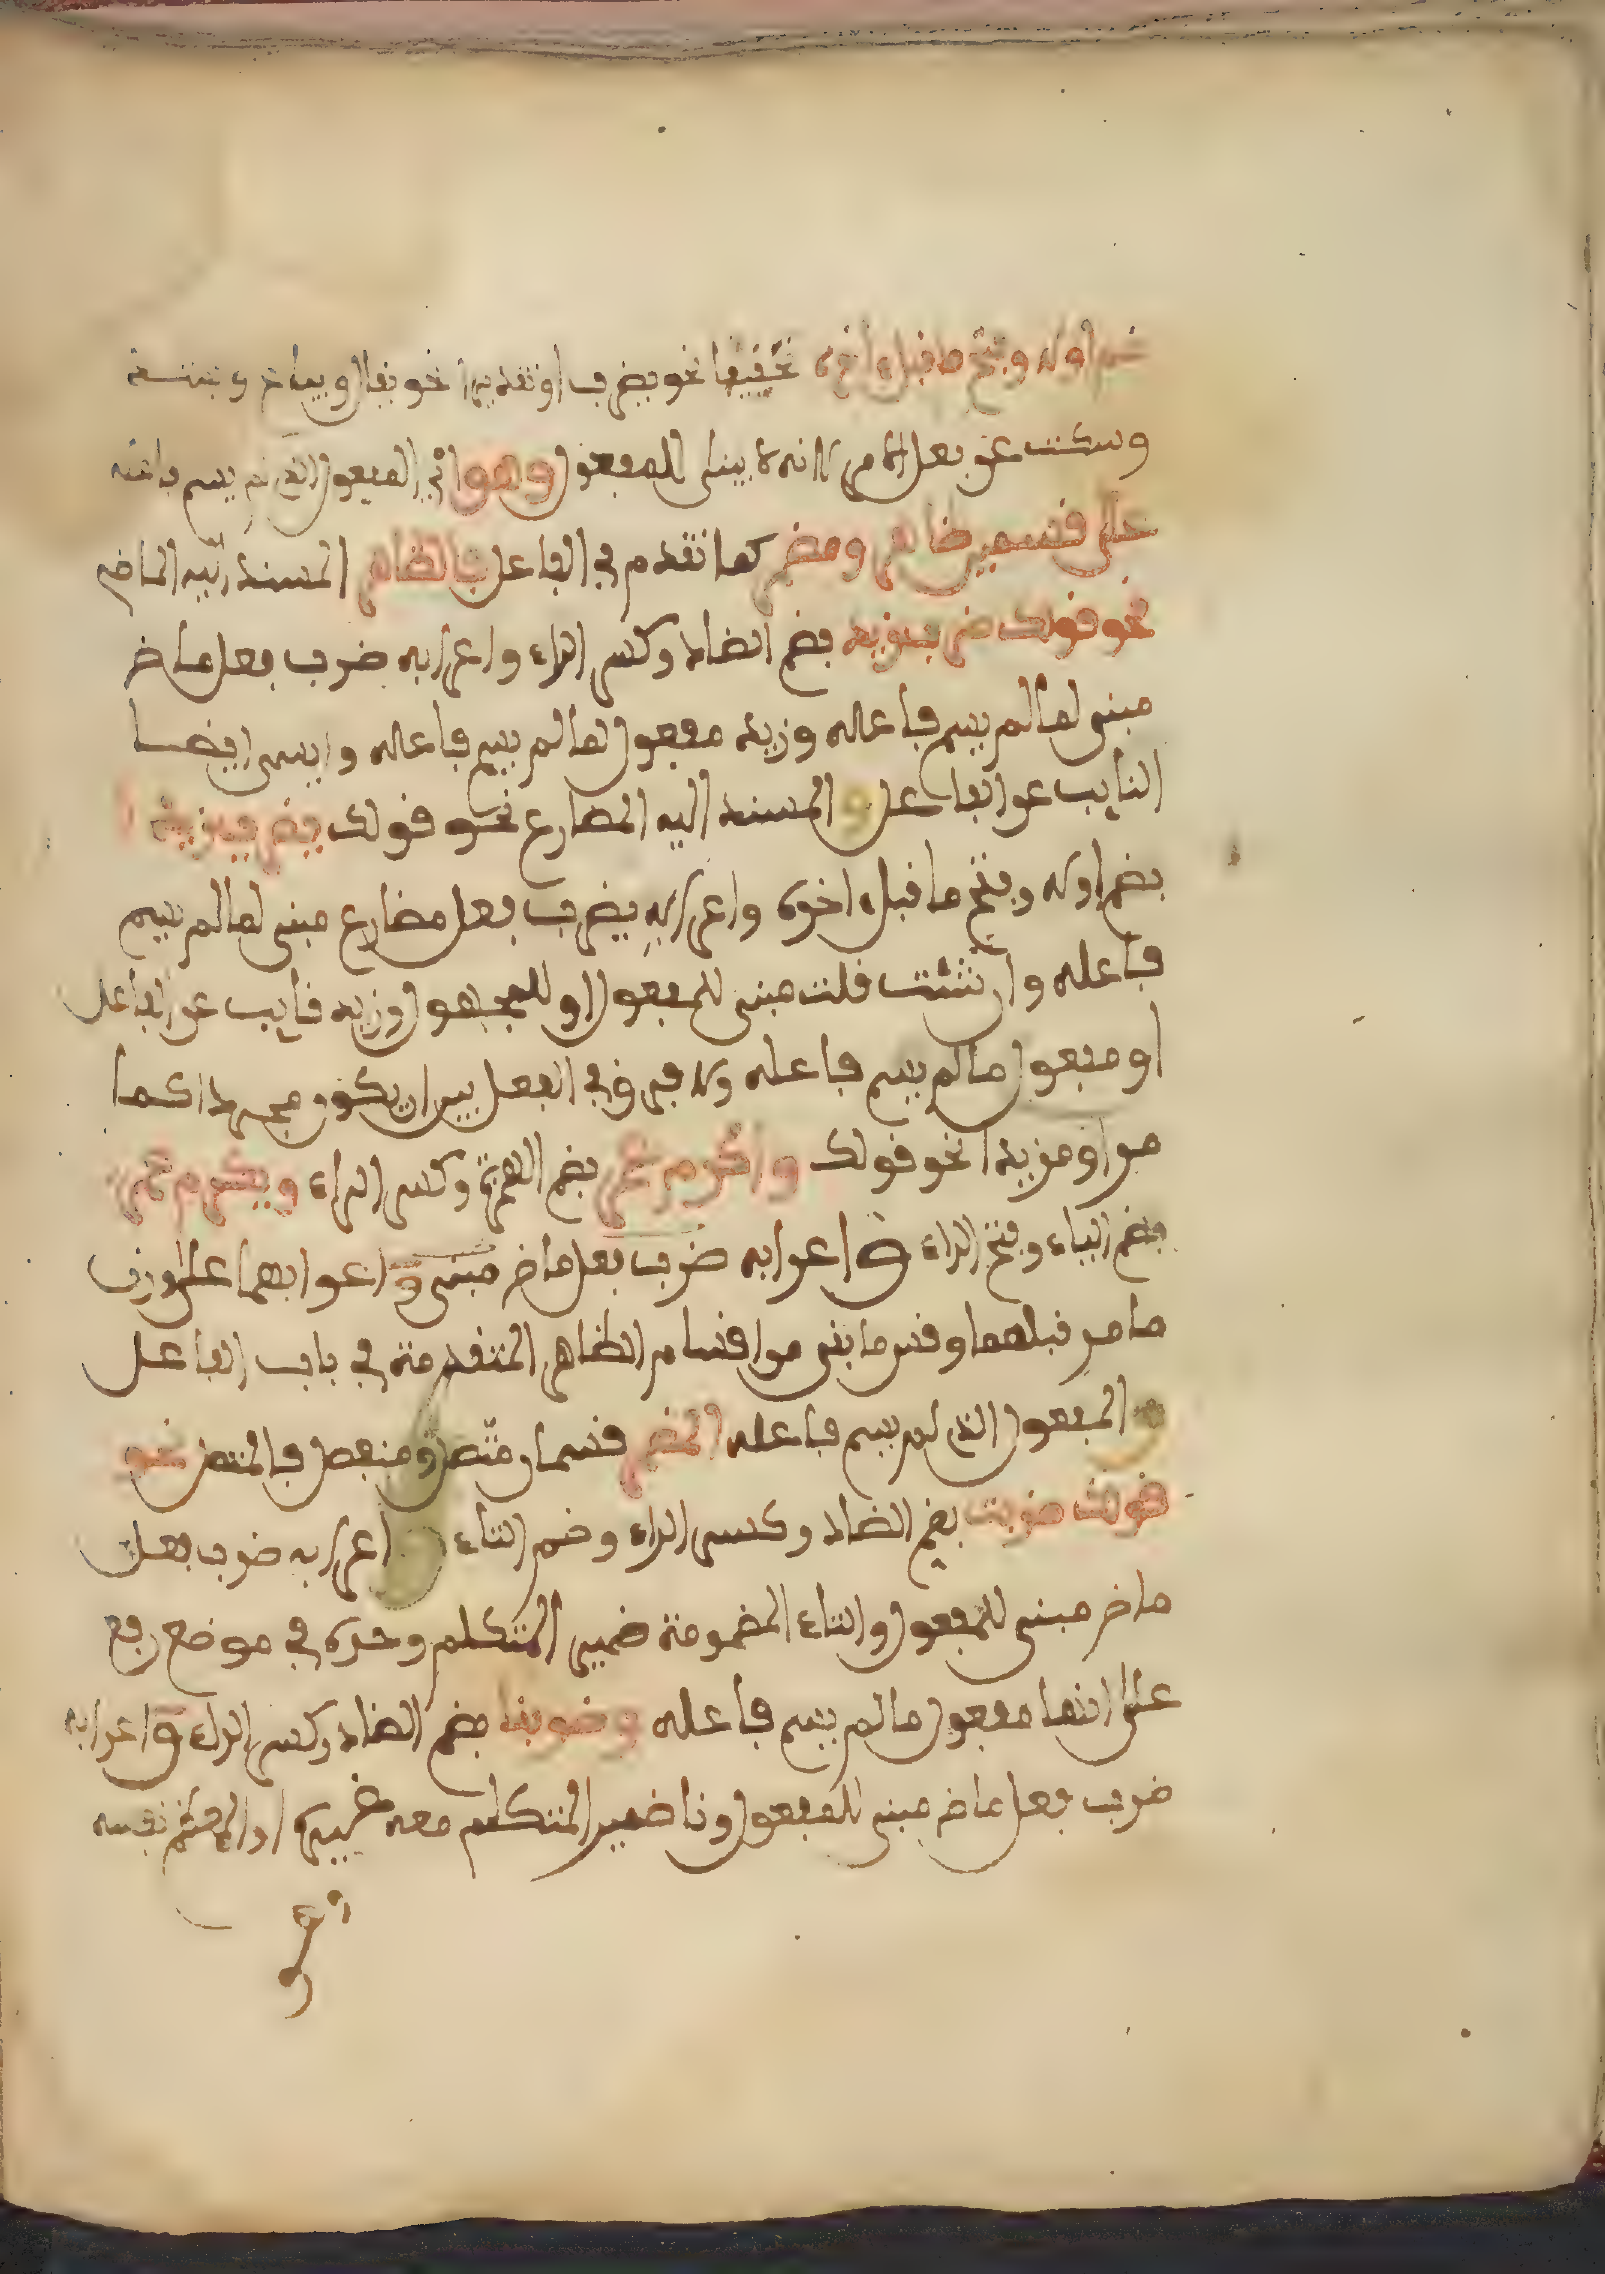 ضم اوله وفتح ما قبل اخره تحقيقا نحو يضرب او تقديرا نحو يقال ويباع
وسكت عن فعل الامر لانه لا يبنى للمفعول وهو اي المفعول الذي لم يسم فاعله
على قسمين ظاهر ومضمر كما تقدم في الفاعل فالظاهر المسند اليه الماضي
نحو قولك ضرب زيد بضم الضاد وكسر الراء واعرابه ضرب فعل ماض
مبني لما لم يسم فاعله وزيد مفعول لما لم يسم فاعله ويسمى ايضا
النايب عن الفاعل والمسند اليه المضارع نحو قولك يضرب زيد
بضم اوله وفتح ما قبل اخره واعرابه يضرب فعل مضارع مبني لما لم يسم
فاعله وان شئت قلت مبني للمفعول او للمجهول وزيد نايب عن الفاعل
او مفعول ما لم يسم فاعله ولا فرق في الفعل بين ان يكون مجردا كما
مر او مزيدا نحو قولك واكرم عمر بضم الهمزة وكسر الراء ويكرم عمر
بضم الياء وفتح الراء واعرابه ضرب فعل ماض مبني واعرابهما على وزن
ما مر قبلهما وقس ما بقي من اقسام الظاهر المتقدمة في باب الفاعل
والمفعول الذي لم يسم فاعله المضمر قسمان متصل ومنفصل فالمتصل نحو
قولك ضربت بضم الضاد وكسر الراء وضم التاء واعرابه ضرب فعل
ماض مبني للمفعول والتاء المضمومة ضمير المتكلم وحده في موضع رفع
على انها مفعول ما لم يسم فاعله وضربنا بضم الضاد وكسر الراء واعرابه
ضرب فعل ماض مبني للمفعول ونا ضمير المتكلم معه غيره او المعظم نفسه